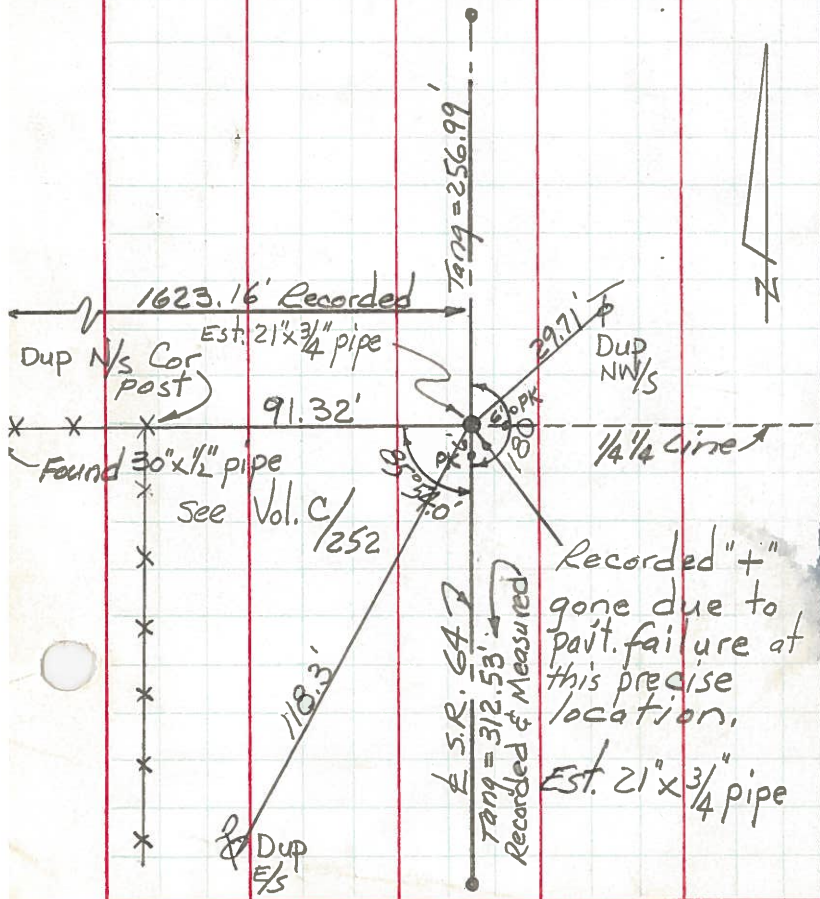 Tang = 256.99'
1623.16' Recorded
Est. 21"x 3/4" pipe
Dup N/s Cor
post
91.32'
29.71'
Dup
NW/s
N
PK
180
1/4 1/4 Line
Found 30"x 1/2" pipe
See Vol. C/252
PK
118.3'
℄ S.R. 64
Tang = 312.53'
Recorded & Measured
Recorded "+"
gone due to
pav't. failure at
this precise
location.
Est. 21"x 3/4" pipe
Dup
E/s